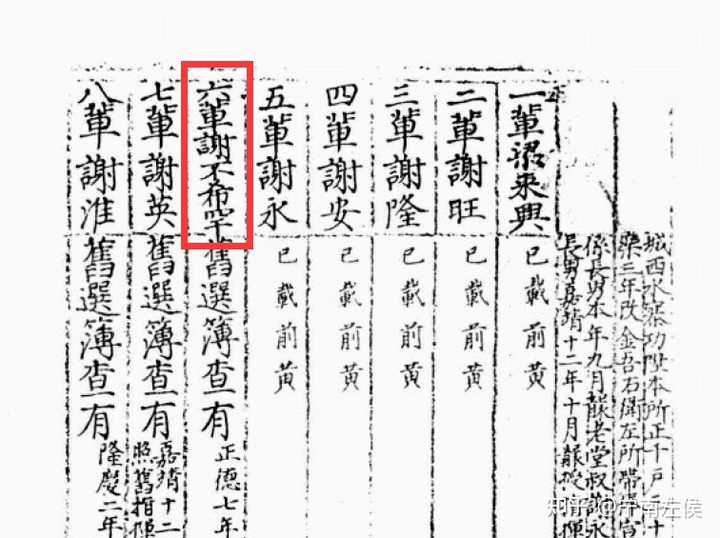 城西水寨功陞本所正千戶二十
三年改金吾右衛左所帶俸宣
係長男本年九月襲老堂叔謝永
長男嘉靖十二年十月襲授
一輩沼來興 已載前黄
二輩謝旺 已載前黄
三輩謝隆 已載前黄
四輩謝安 已載前黄
五輩謝永 已載前黄
六輩謝不希罕 舊選簿查有 正德七年
七輩謝英 舊選簿查有 嘉靖十二
照舊指揮
八輩謝淮 舊選簿查有 隆慶二年
知乎 @中南左侯